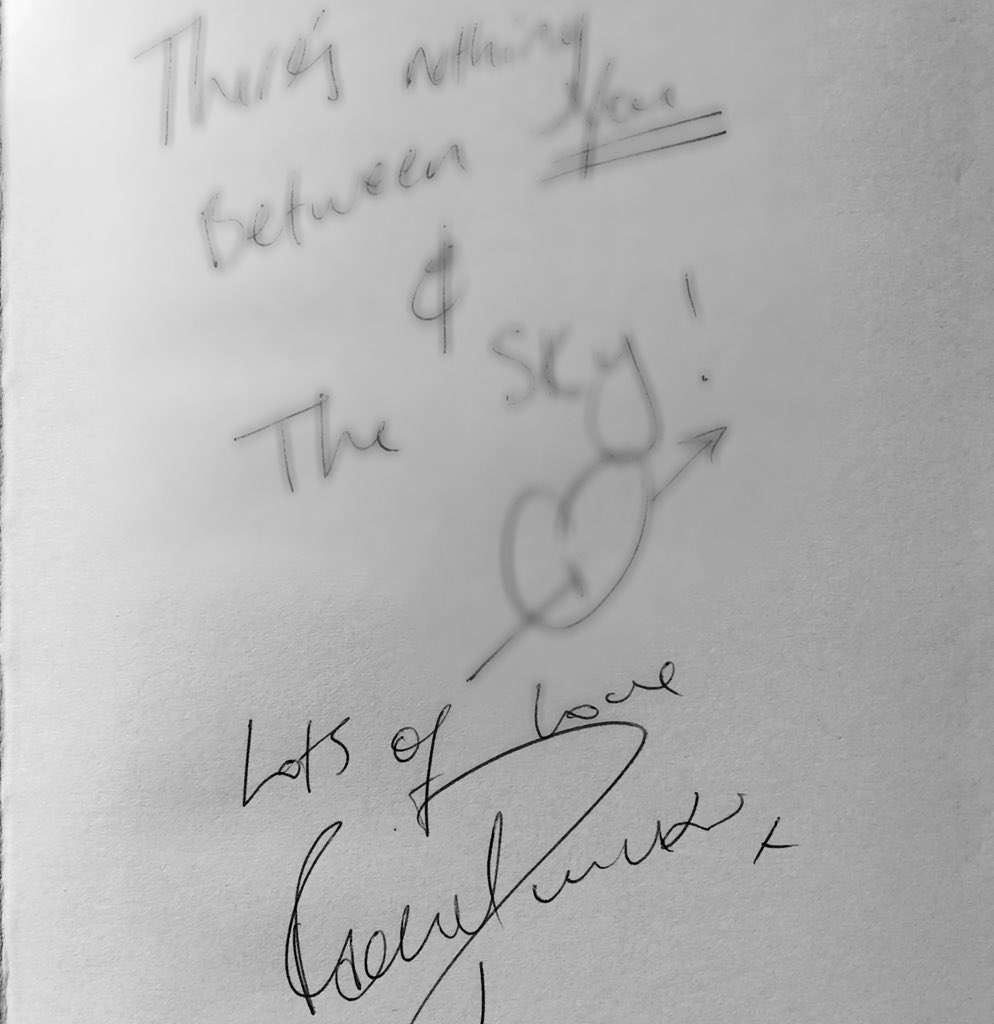 There's nothing
Between You
&
The Sky!
Lots of Love
x